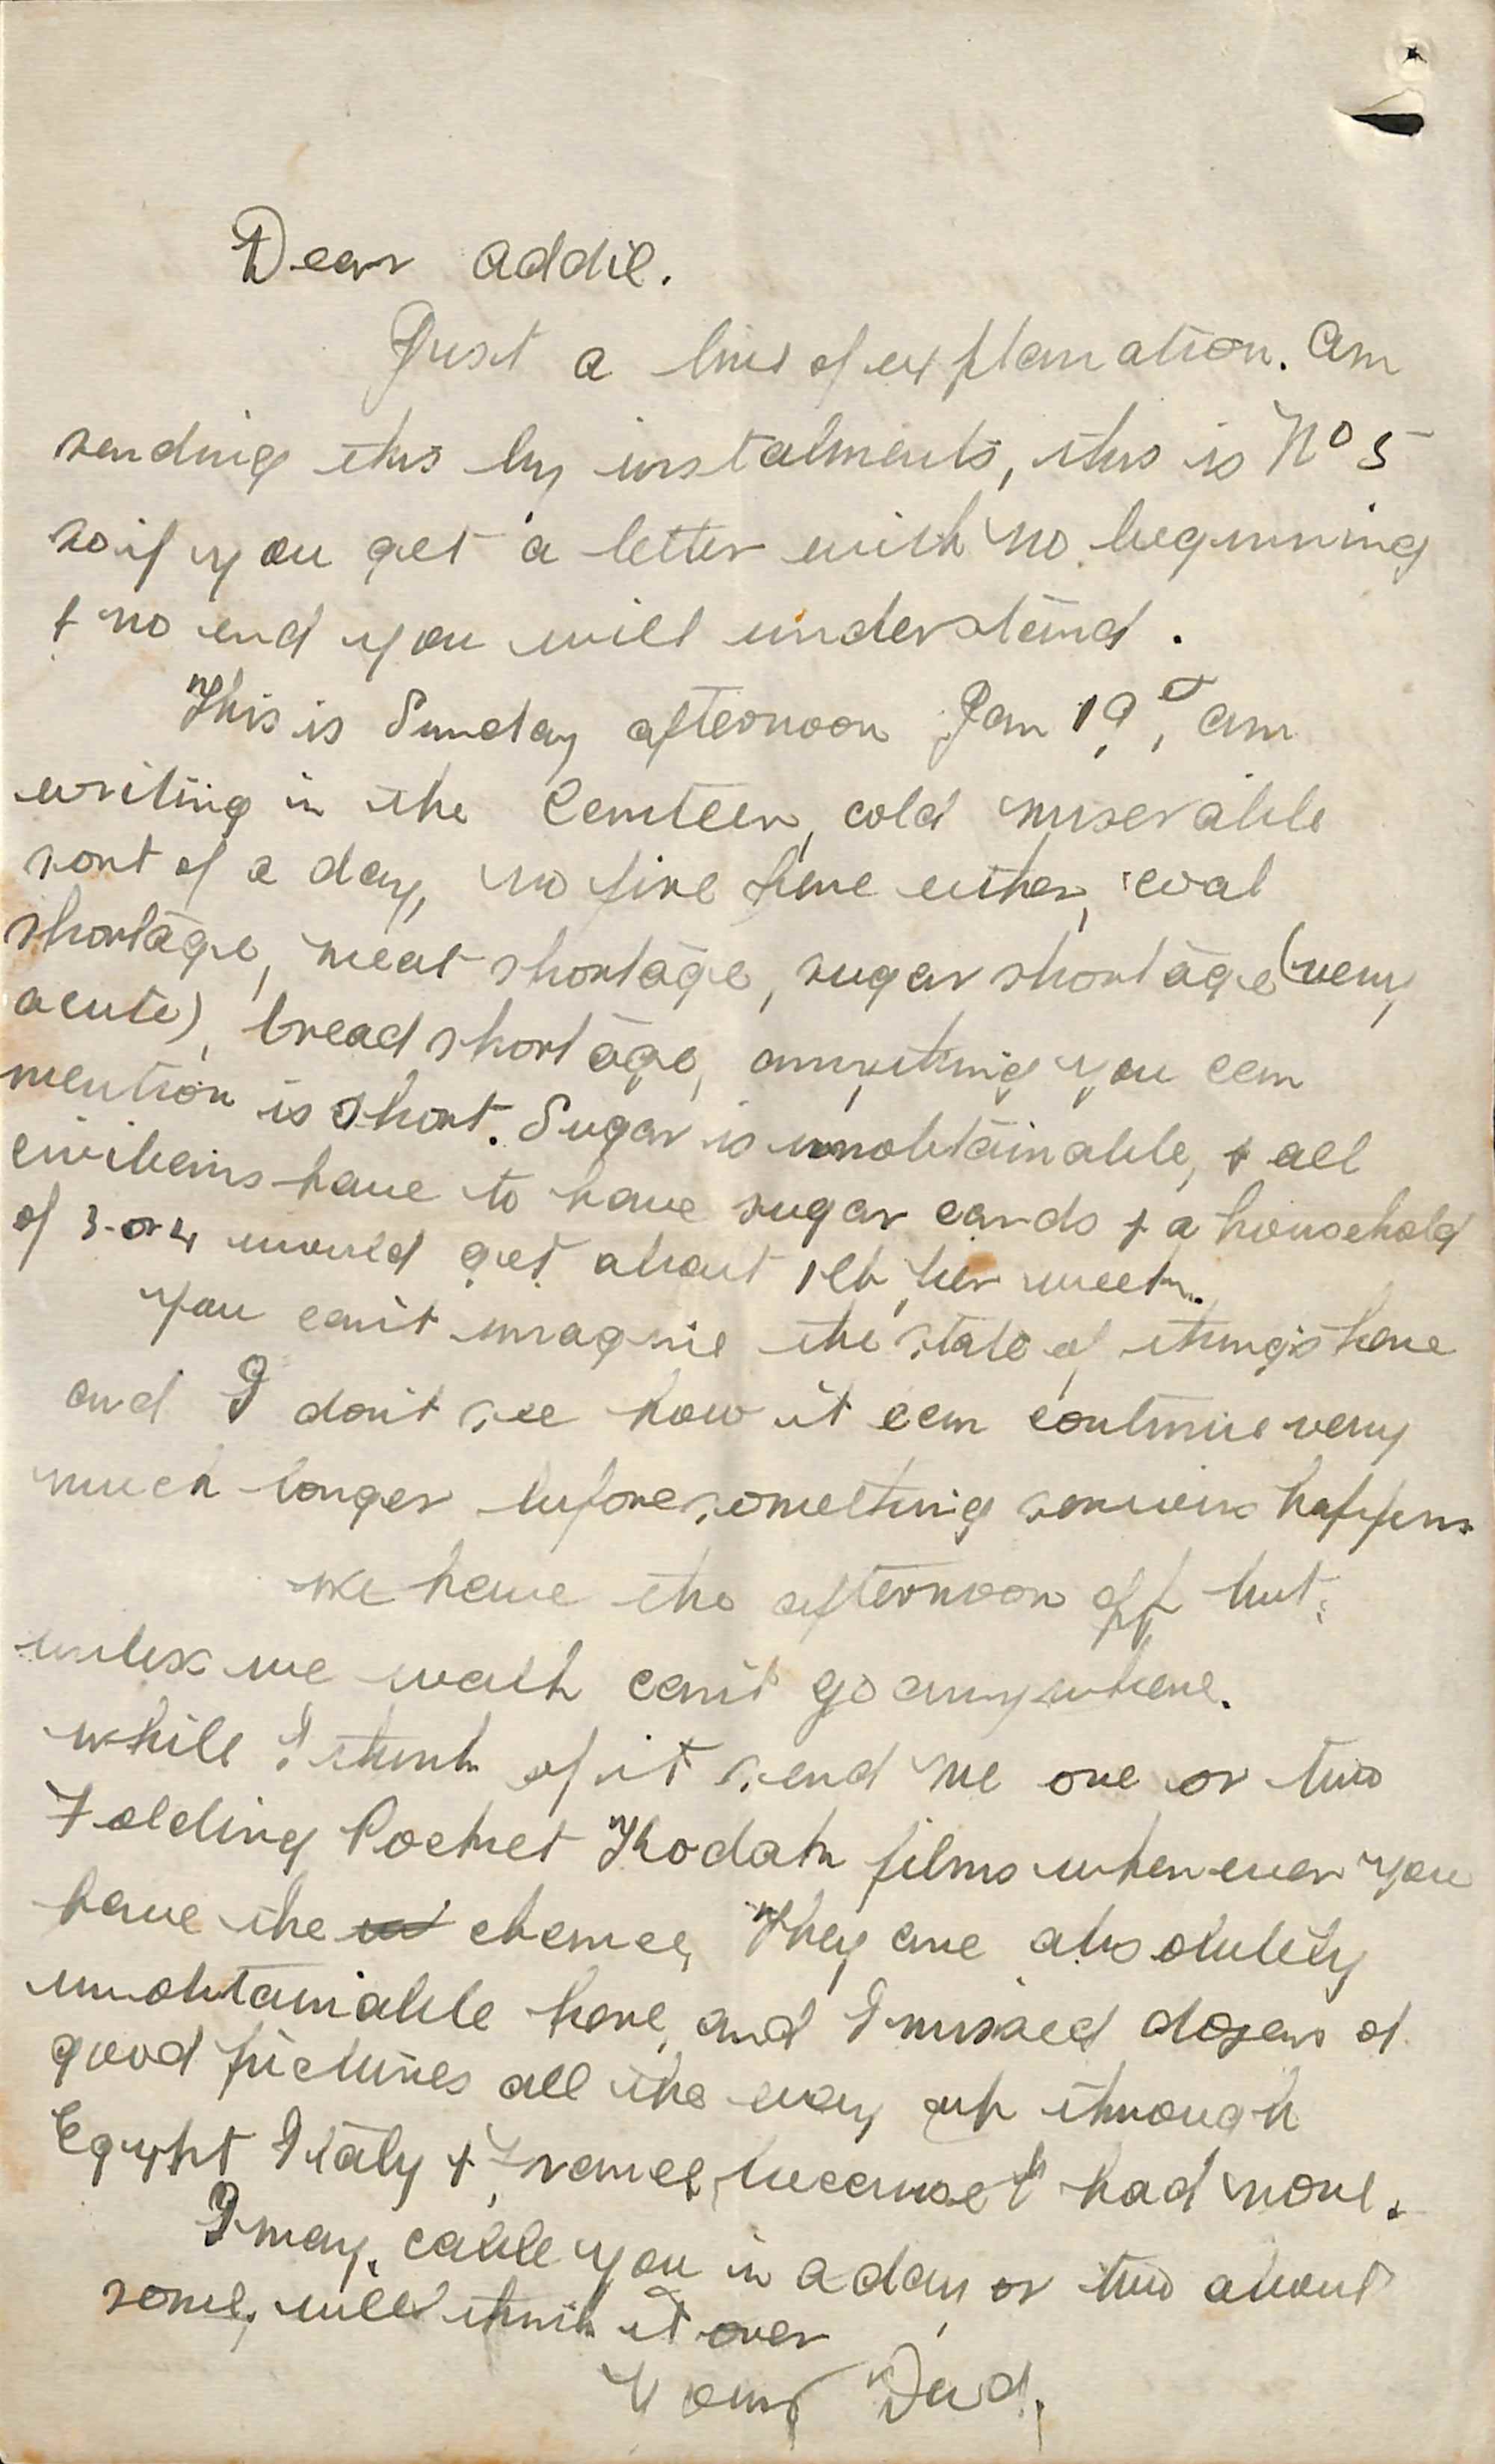 Dear Addie.
Just a line of explanation. Am
sending this by instalments, this is No 5
so if you get a letter with no beginning
& no end you will understand.
This is Sunday afternoon Jan 19, am
writing in the Canteen, cold miserable
sort of a day, no fire here either, coal
shortage, meat shortage, sugar shortage (very
acute), bread shortage, anything you can
mention is short. Sugar is unobtainable, & all
civilians have to have sugar cards & a household
of 3 or 4 would get about 1 lb per week.
You can't imagine the state of things here
and I don't see how it can continue very
much longer before something serious happens
We have the afternoon off but
unless we walk can't go anywhere.
While I think of it send me one or two
Folding Pocket Kodak films whenever you
have the chance, They are absolutely
unobtainable here, and I missed dozens of
good pictures all the way up through
Egypt Italy & France, because I had none.
I may cable you in a day or two about
some, will think it over
Yours